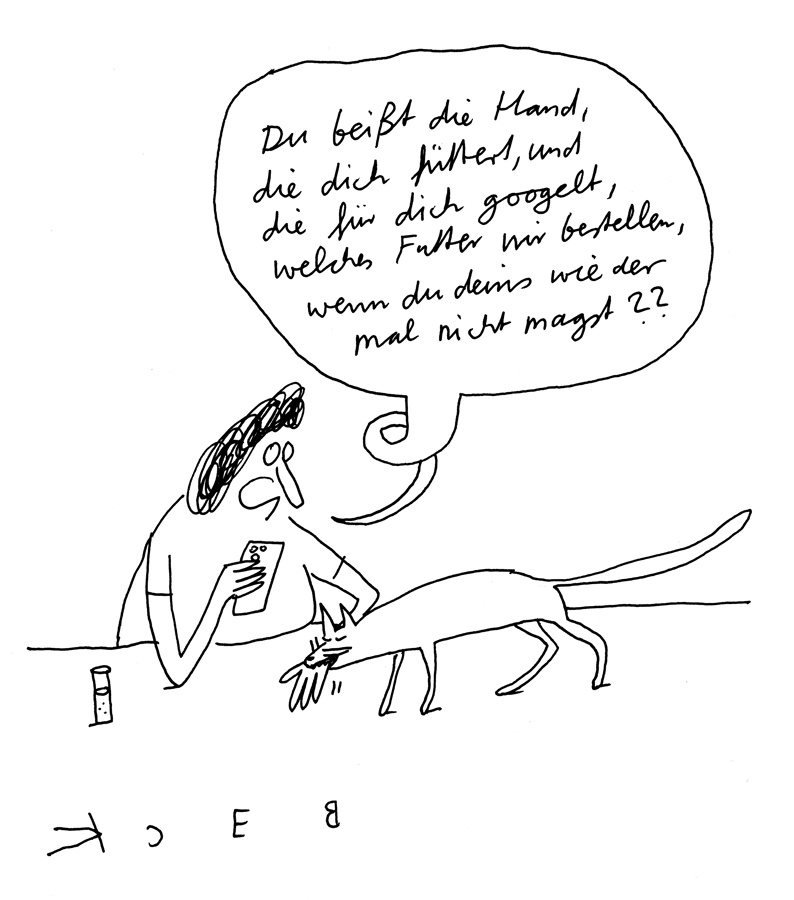 Du beißt die Hand,
die dich füttert, und
die für dich googelt,
welches Futter wir bestellen,
wenn du deins wieder
mal nicht magst ??
BECK